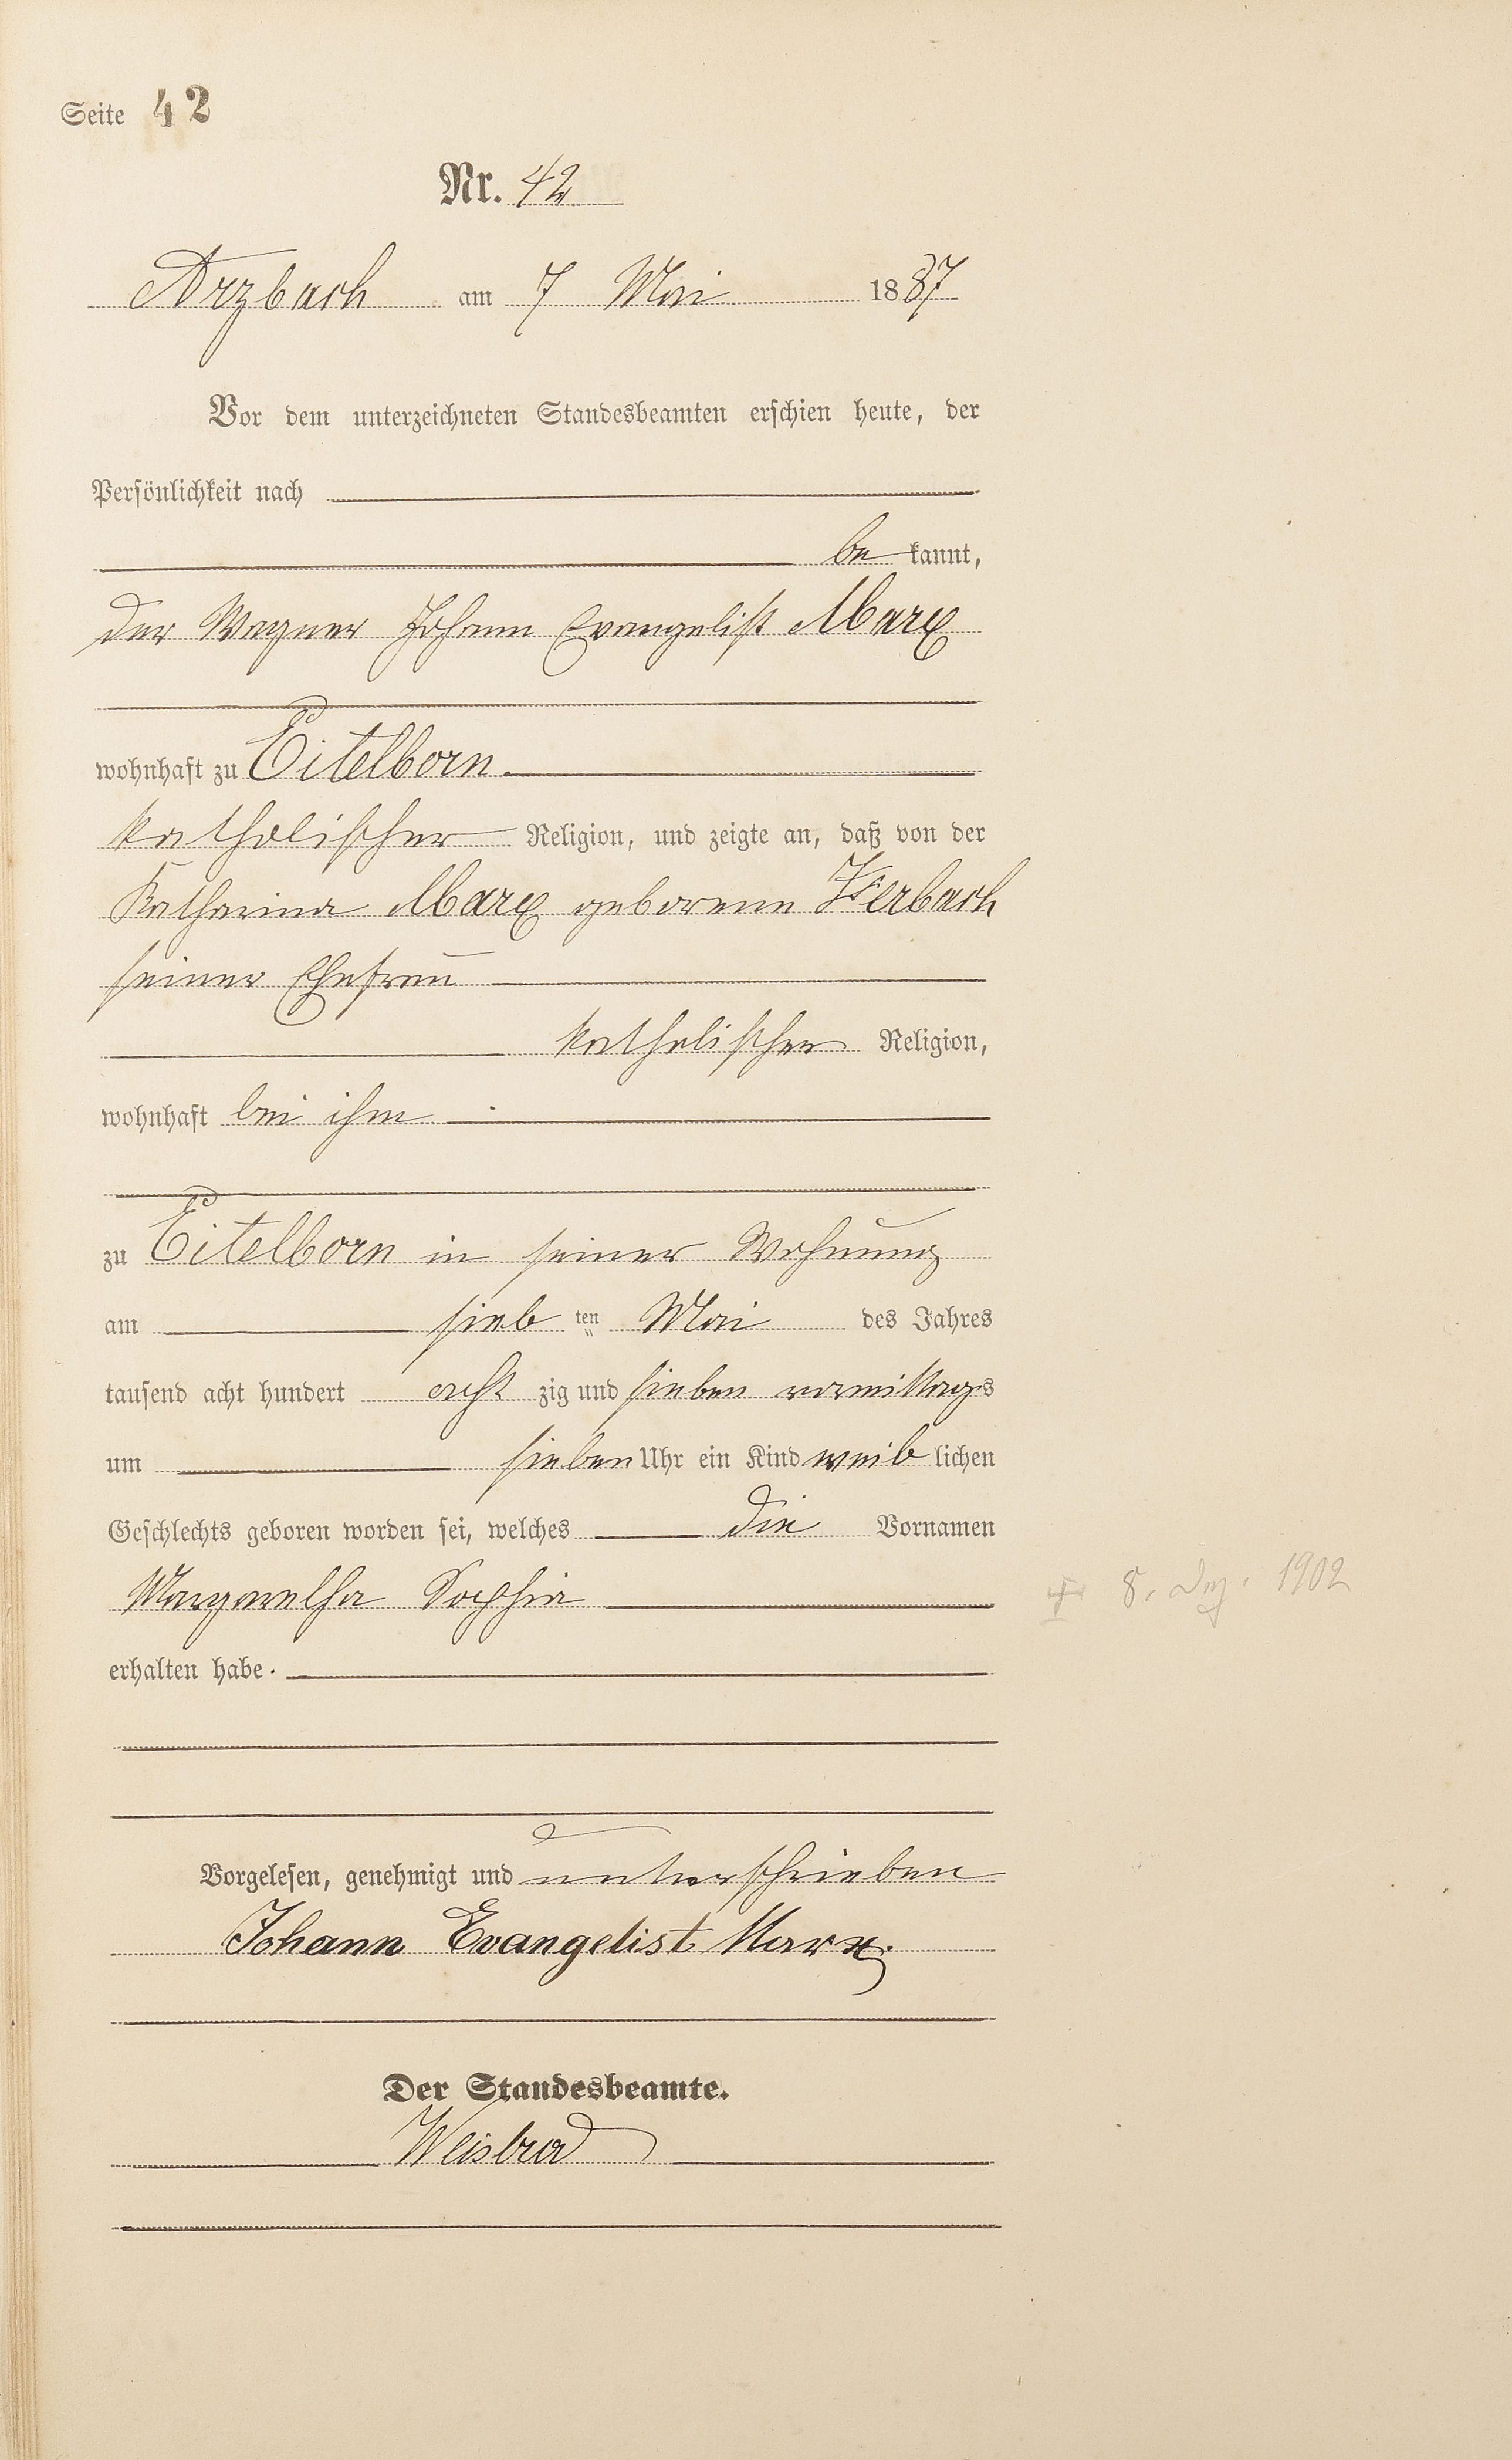 Seite 42
Nr. 42
Arzbach am 7 Mai 1887
Vor dem unterzeichneten Standesbeamten erschien heute, der
Persönlichkeit nach
be kannt,
der Wagner Johann Evangelist Marx
wohnhaft zu Eitelborn.
katholischer Religion, und zeigte an, daß von der
Katharina Marx geborene Iserbach
seiner Ehefrau
katholischer Religion,
wohnhaft bei ihm
zu Eitelborn in seiner Wohnung
am sieb ten Mai des Jahres
tausend acht hundert acht zig und sieben vormittags
um sieben Uhr ein Kind weib lichen
Geschlechts geboren worden sei, welches die Vornamen
Margaretha Sophia
† 8. Dez. 1902
erhalten habe.
Vorgelesen, genehmigt und unterschrieben
Johann Evangelist Marx.
Der Standesbeamte.
Weisbrod